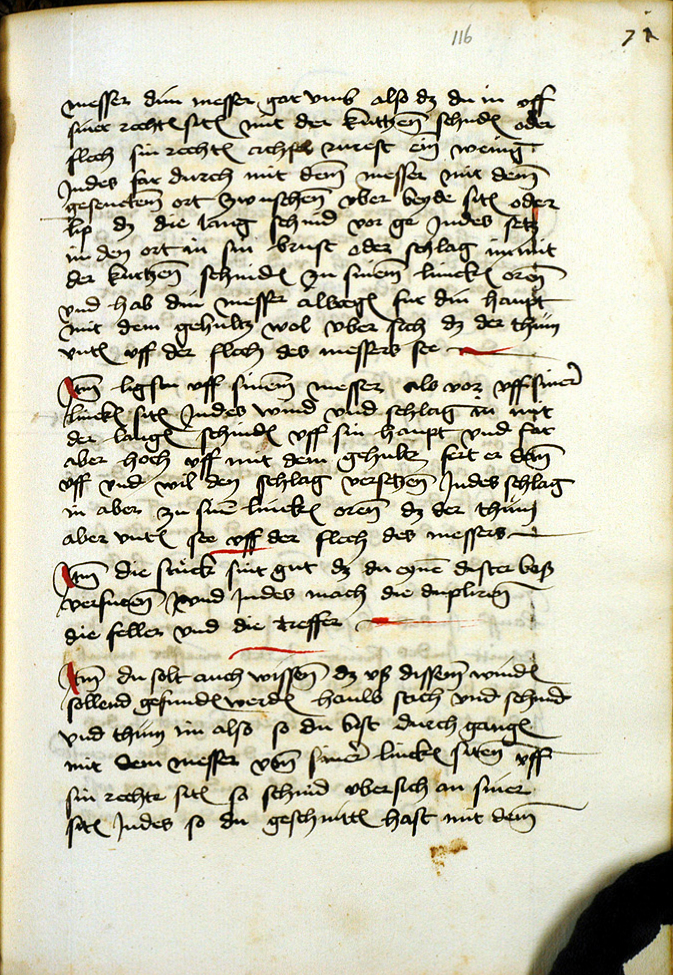 116
71
messer din messer gat vmb also dz du in vff
siner rechtē sitē mit der kurtzen schnidē oder
flech sin rechtē achseln rurest ein wenig
Indes far durch mit dem messer mit dem
gesencktem ort zwuschen vber beyde sitē oder
lip dz die lang schnid vor ge Indes setz
im den ort in sin brust oder schlag in mit
der kurtzen schnidē zu sinem linckē oren
vnd hab din messer alwegē fur din haupt
mit dem gehultz wol vber sich dz der thum
vntē vff der flech des messers see
Itm ligstu vff sinem messer als vor vff siner
linckē sitē Indes wind vnd schlag in mit
der langē schnidē vff sin haupt vnd far
aber hoch vff mit dem gehultz fert er dan
vff vnd wil den schlag versetzen Indes schlag
in aber zu sinē linckē oren dz der thum
aber vntē see vff der flech des messers
Itm die stuck sint gut dz du eynē dester bas
versuren vnd Indes mach die dupliren
die feller vnd die treffer
Itm du solt auch wissen dz vß dissem windē
sollend gefundē werdē hauw stich vnd schnid
vnd thun im also so du bist durch gangē
mit dem messer von siner lincken siten vff
sin rechte sitē so schnid vbersich an siner
sitē Indes so du geschnittē hast mit dem